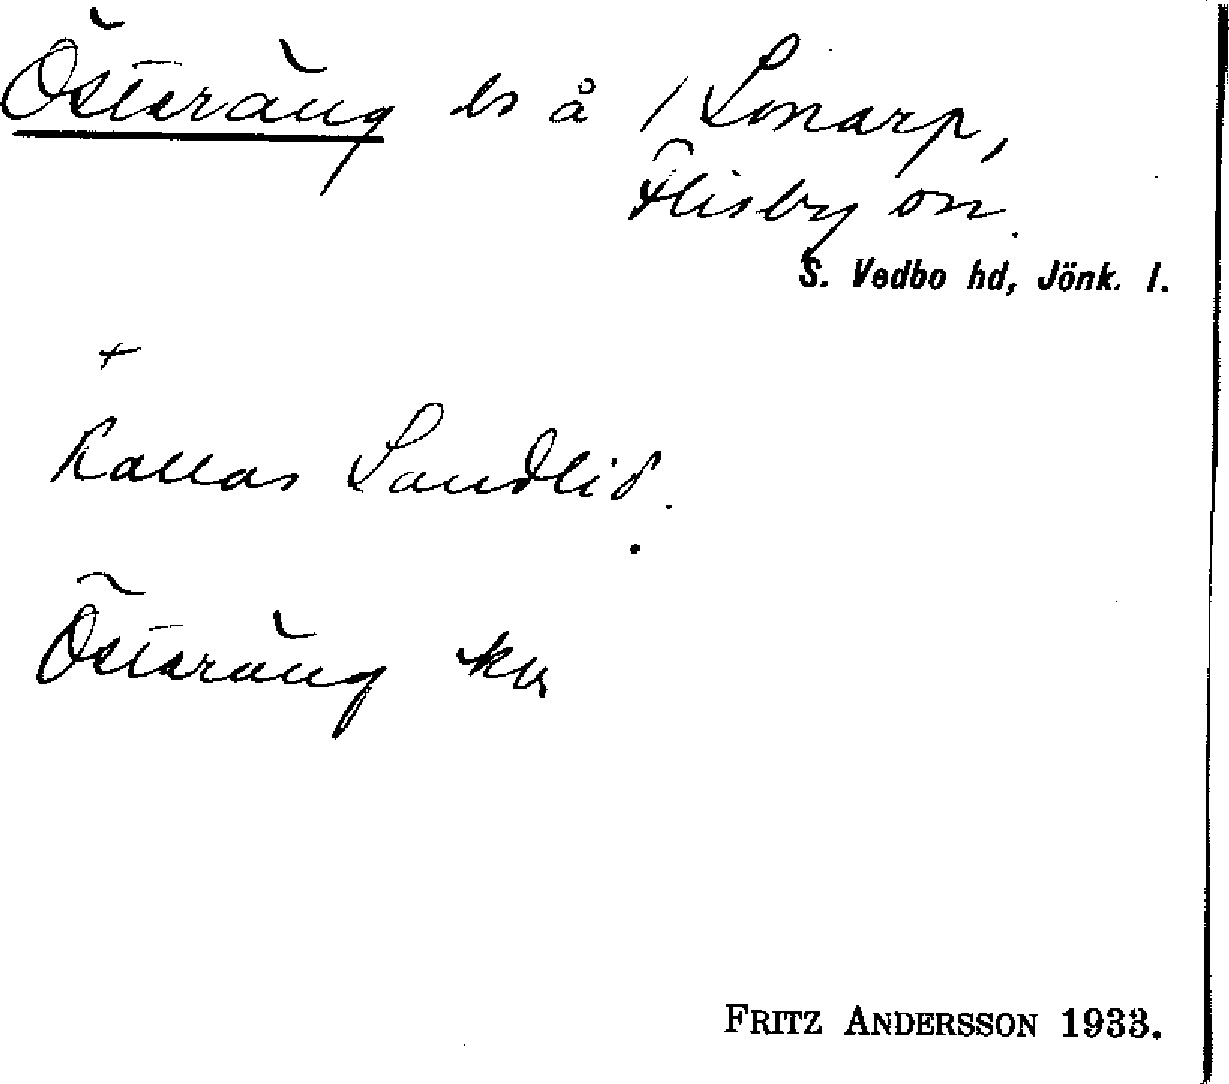 Österäng ls å 1 Lonarp,
Flisby sn.
S. Vedbo hd, Jönk. l.
+
Kallas Sandlid.
Österäng ku
FRITZ ANDERSSON 1933.